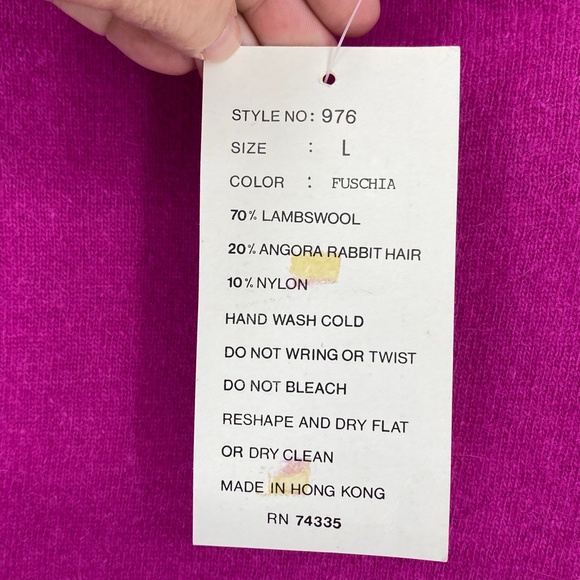 STYLE NO: 976
SIZE : L
COLOR : FUSCHIA
70% LAMBSWOOL
20% ANGORA RABBIT HAIR
10% NYLON
HAND WASH COLD
DO NOT WRING OR TWIST
DO NOT BLEACH
RESHAPE AND DRY FLAT
OR DRY CLEAN
MADE IN HONG KONG
RN 74335